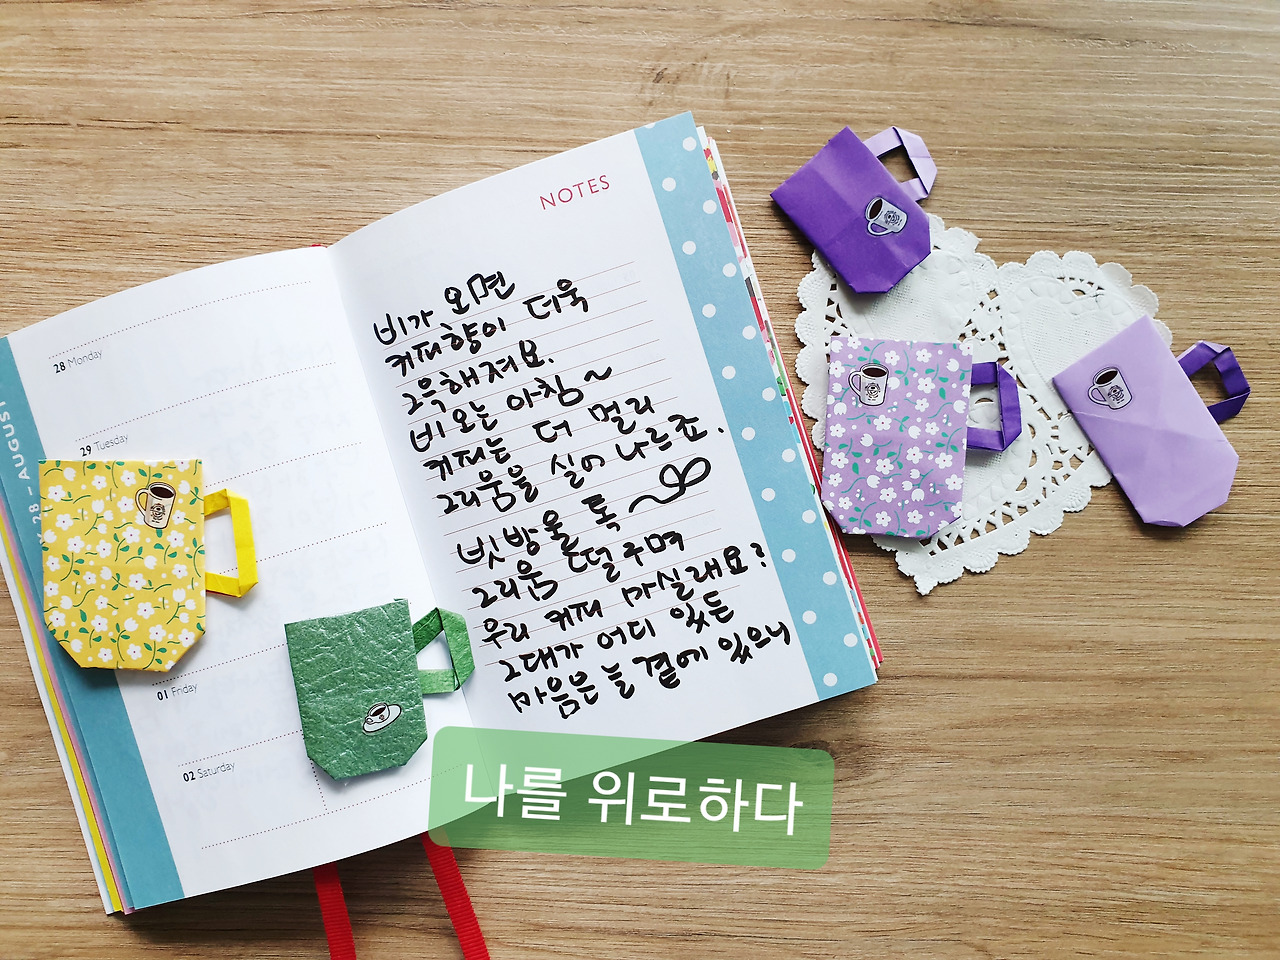 28 - AUGUST
28 Monday
29 Tuesday
01 Friday
02 Saturday
NOTES
비가 오면
커피향이 더욱
그윽해져요.
비오는 아침~
커피는 더 멀리
그리움을 실어 나르죠.
빗방울 톡
그리움 떨구며
우리 커피 마실래요?
그대가 어디 있든
마음은 늘 곁에 있으니
나를 위로하다